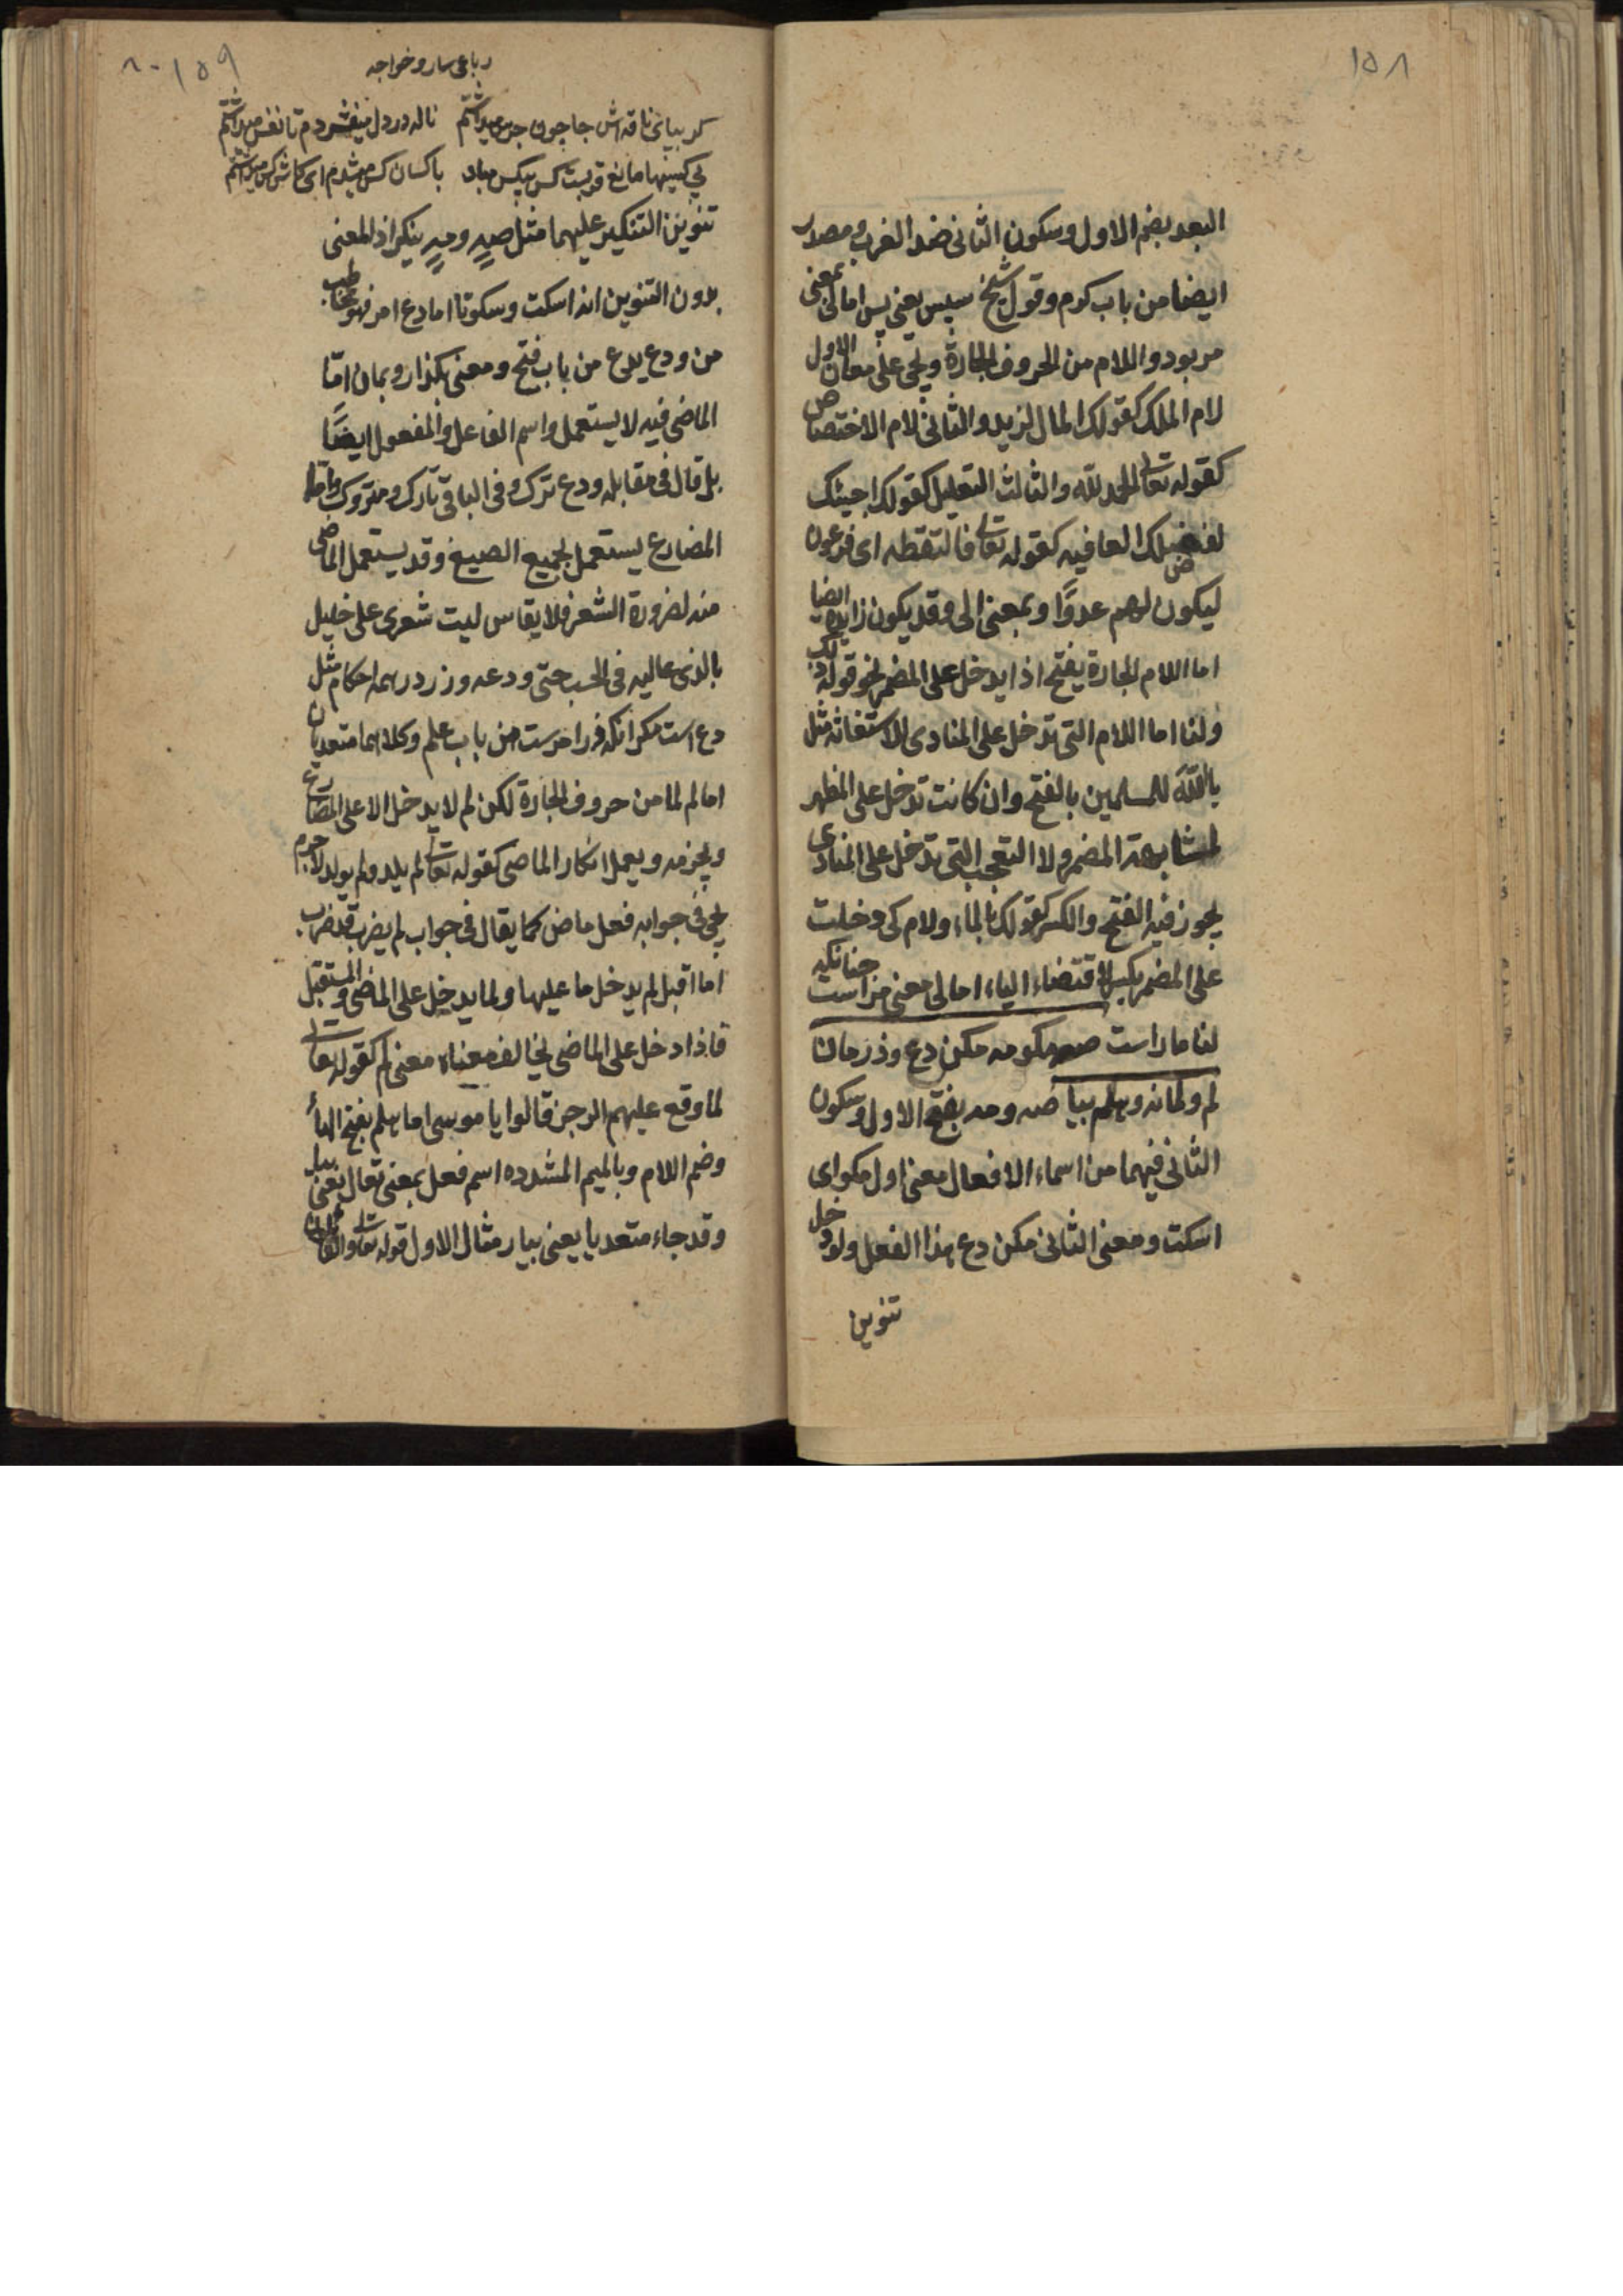 ١٥٨
البعد بضم الاول وسكون الثانى ضد القرب ومصدر
ايضا من باب كرم وقول شيخ سپس يعنى پس اما لى بمعنى
مر بود واللام من الحروف الجارة ويجئ على معان الاول
لام الملك كقولك المال لزيد والثانى لام الاختصاص
كقوله تعالى الحمد لله والثالث التعليل كقولك اجيئك
لفضلك العافيه كقوله تعالى فالتقطه اى فرعون
ليكون لهم عدوًا وبمعنى الى وقد يكون زايدة ايضا
اما اللام الجارة يفتح اذا يدخل على المضمر نحو قوله لك
ولنا اما اللام التى تدخل على المنادى للاستغاثه مثل
يا لله للمسلمين بالفتح وان كانت تدخل على المظهر
لمشابهة المضمر ولا التعجب التى تدخل على المنادى
يجوز فيه الفتح والكسر كقولك يا للماء ولام كى دخلت
على المضمر بكسر لاقتضاء الياء اما لى معنى مراست چنانكه
لنا ماراست صه مكو مه مكن دع وذر مان
لم ولما نه وهلم بيا صه ومه بفتح الاول وسكون
الثانى فيهما من اسماء الافعال معنى اول مكو اى
اسكت ومعنى الثانى مكن دع هذا الفعل ولو دخل
تنوين
١٥٩
٨٠
رباعى سار وخواجه
كر بپاى ناقه اش جا چون جرس ميداشتم ناله در دل ميفشردم تا نفس ميداشتم
بى كسيها مانع قربت كس بيكس مباد با كسان كس ميشدم اى كاش كس ميداشتم
تنوين التنكير عليهما مثل صهٍ ومهٍ ينكر اذ المعنى
بدون التنوين انه اسكت وسكوتا اما دع امر فهو مخاطب
من ودع يدع من باب فتح ومعنى بكذار وبمان امّا
الماضى فيه لا يستعمل واسم الفاعل والمفعول ايضًا
بل قال فى مقابله ودع ترك وفى الباقى تارك ومتروك واما
المضارع يستعمل لجميع الصيغ وقد يستعمل الماضى
منه لضرورة الشعر فلا يقاس ليت شعرى على خليل
بالذى عاليه فى الحب حتى ودعه وزر در همه احكام مثل
دع است مكر انكه فرا مرست من باب علم وكلاهما متعديان
اما لم لما من حروف الجارة لكن لم لا يدخل الا على المضارع
ويجزمه ويعمل انكار الماضى كقوله تعالى لم يلد ولم يولد لاجرم
يجئ فى جوابه فعل ماض كما يقال فى جواب لم يضرب قد ضرب
اما اقبل لم يدخل ما عليها ولما يدخل على الماضى والمستقبل
فاذا دخل على الماضى يخالف معناه معنى لم كقوله تعالى
لما وقع عليهم الرجز قالوا يا موسى اما هلم بفتح الهاء
وضم اللام وبالميم المشدده اسم فعل بمعنى تعال يعنى بيا
وقد جاء متعديا يعنى بيار مثال الاول قوله تعالى والقائلين